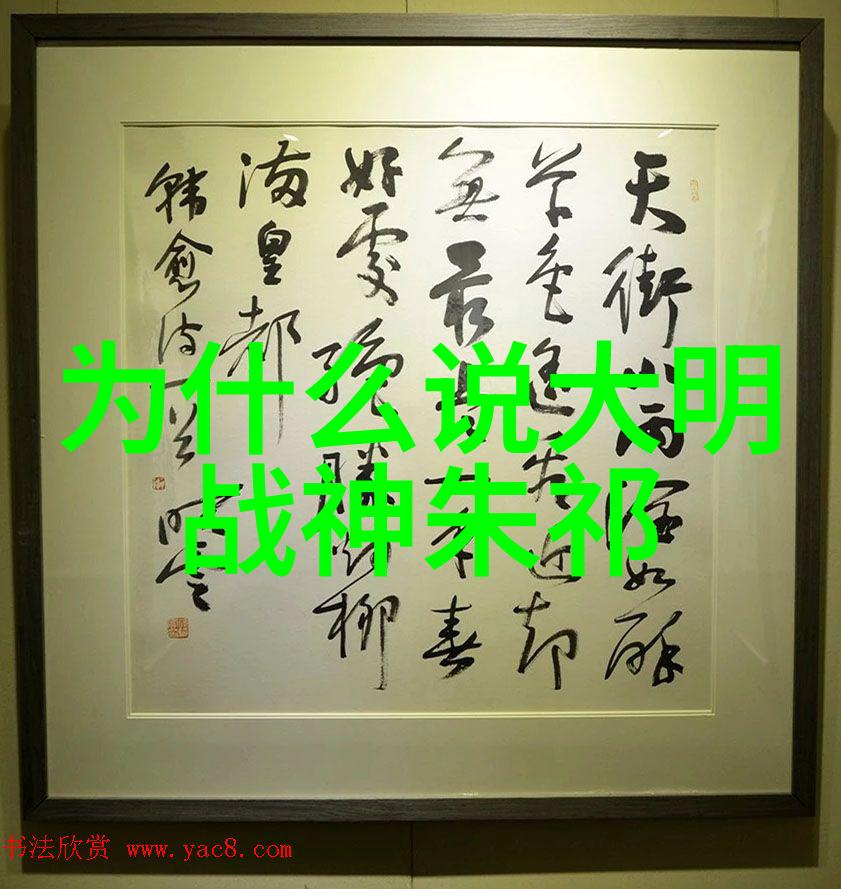 为什么说大明
战神朱祁
天街小雨润如酥
草色遥看近却
無最是一年春
好處绝勝烟柳
满皇都
韩愈诗一首
书法欣赏 www.yac8.com